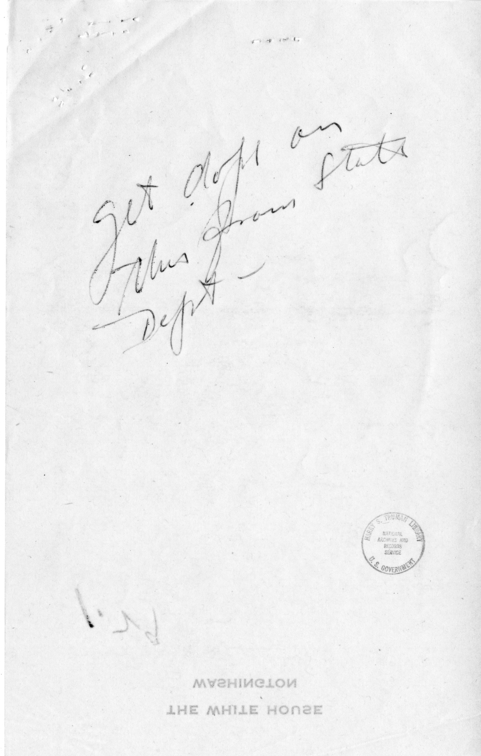 get dope on
this from State
Dept—
HARRY S. TRUMAN LIBRARY
NATIONAL
ARCHIVES AND
RECORDS
SERVICE
U. S. GOVERNMENT
WASHINGTON
THE WHITE HOUSE